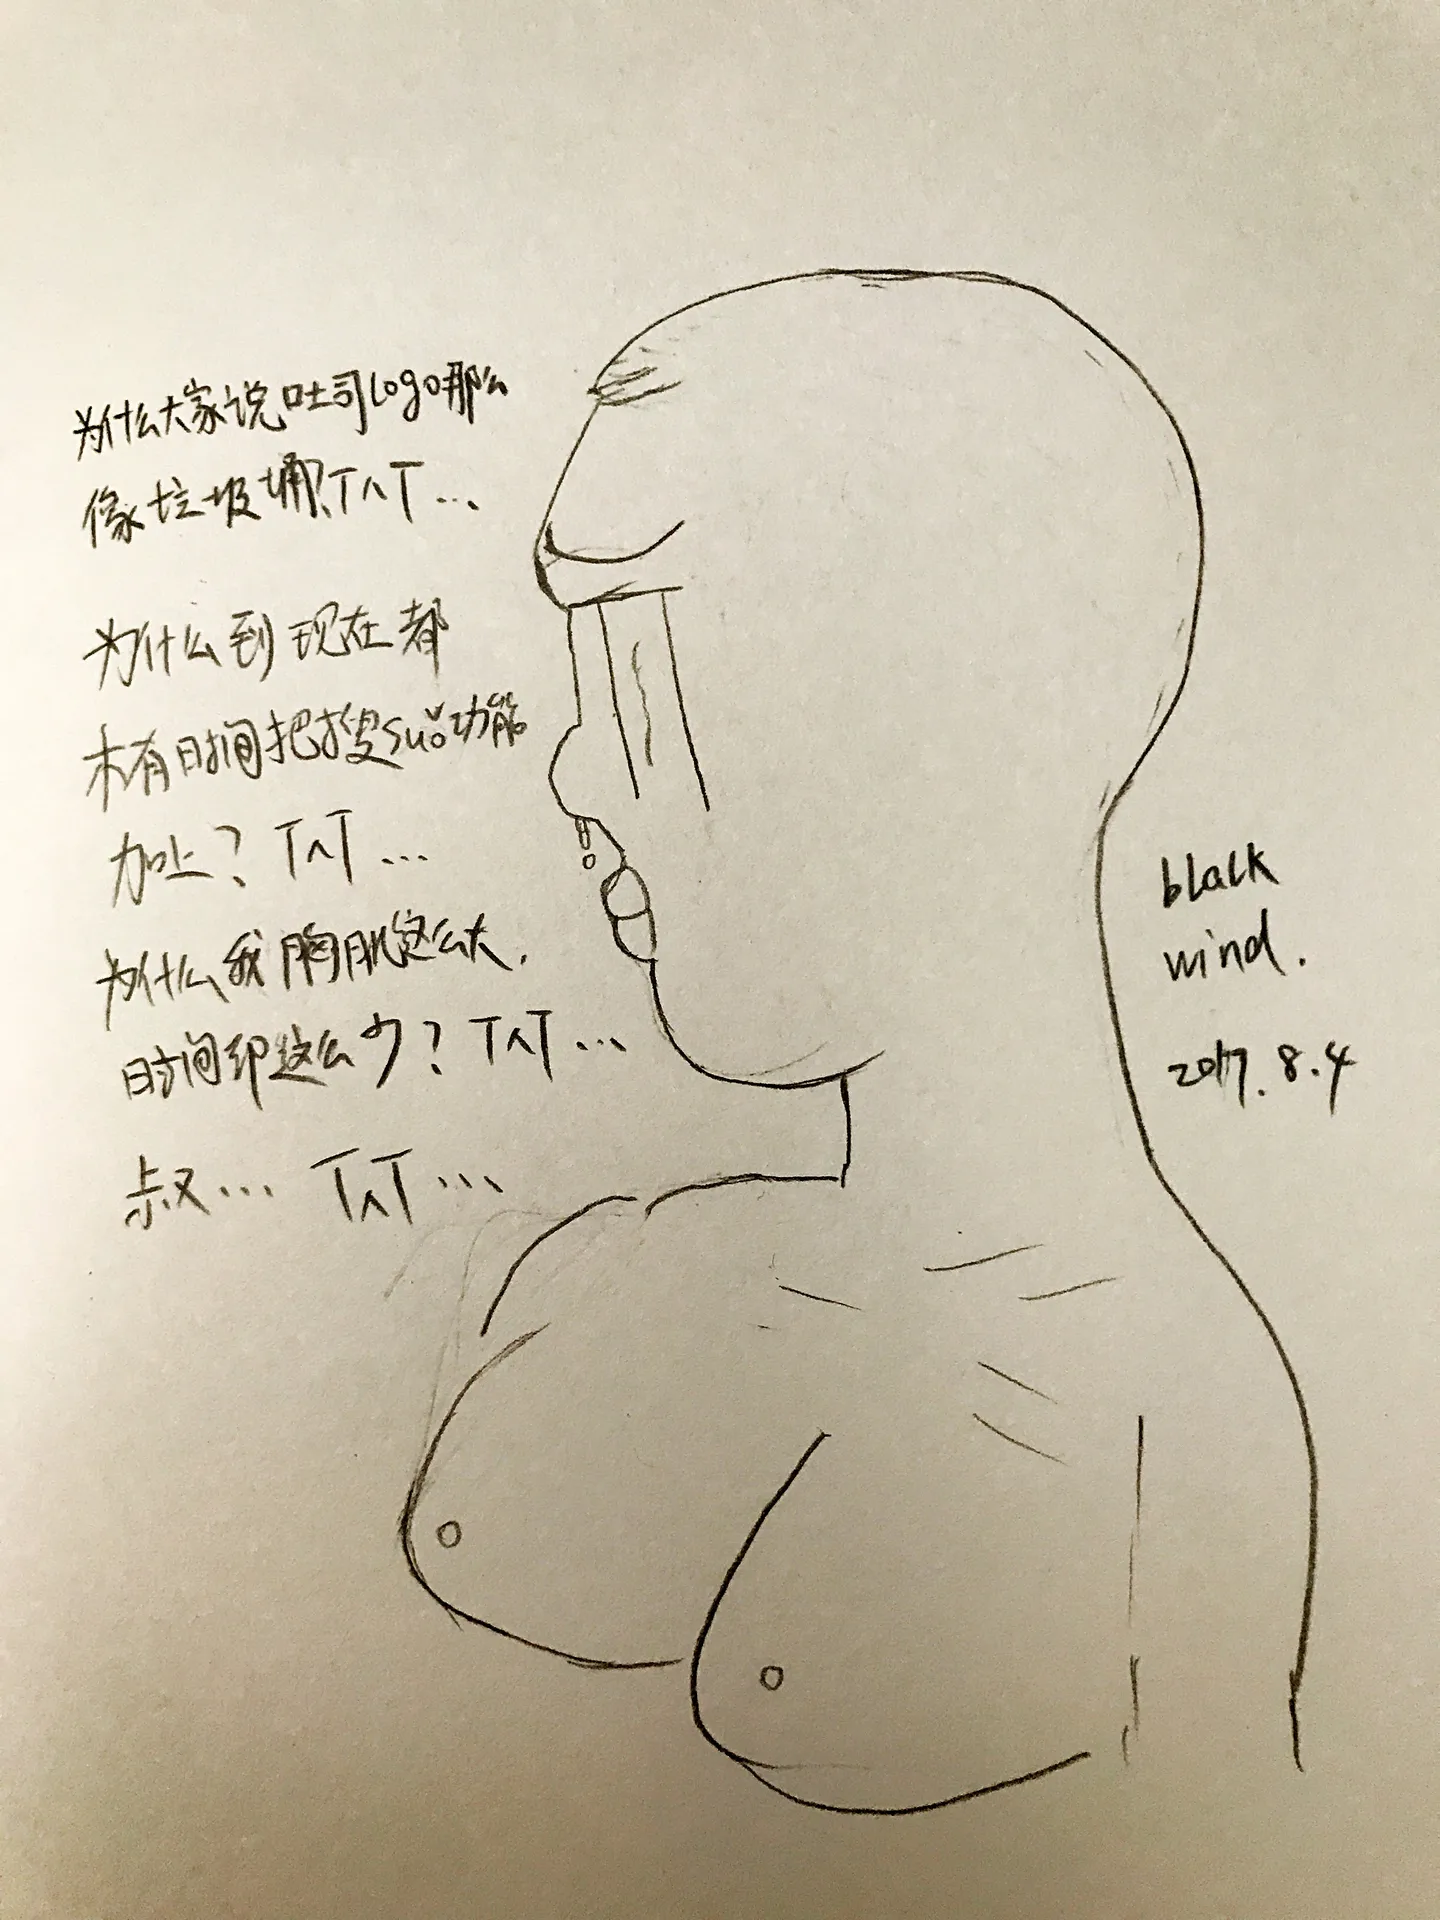 为什么大家说吐司logo那么
像垃圾桶TAT...
为什么到现在都
木有时间把搜suǒ功能
加上？TAT...
为什么我胸肌这么大，
时间却这么少？TAT...
叔... TAT...
black
wind.
2017.8.4